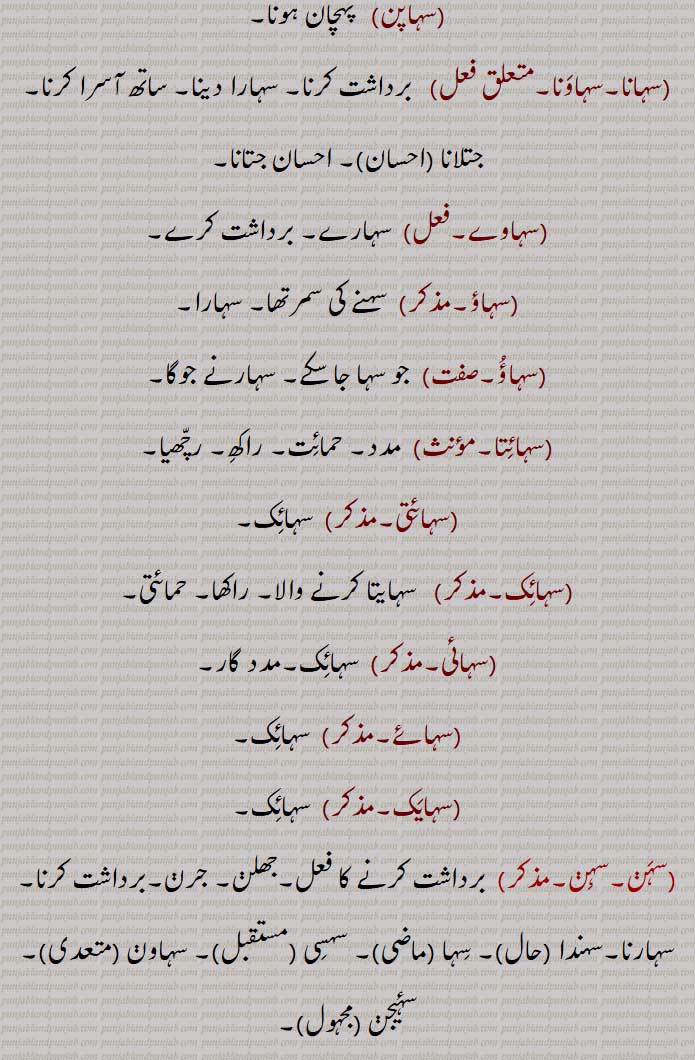 (سہاپن) پہچان ہونا۔
(سہانا۔سہاؤنا۔متعلق فعل) برداشت کرنا۔ سہارا دینا۔ ساتھ آسرا کرنا۔
جتلانا (احسان)۔ احسان جتانا۔
(سہاوے۔فعل) سہارے۔ برداشت کرے۔
(سہاؤ۔مذکر) سہنے کی سمرتھا۔ سہارا۔
(سہاؤُ۔صفت) جو سہا جا سکے۔ سہارنے جوگا۔
(سہائِتا۔مؤنث) مدد۔ حمائِت۔ راکھِ۔ رچّھیا۔
(سہائتی۔مذکر) سہائِک۔
(سہائِک۔مذکر) سہایتا کرنے والا۔ راکھا۔ حمائتی۔
(سہائی۔مذکر) سہائِک۔مدد گار۔
(سہائے۔مذکر) سہائِک۔
(سہایَک۔مذکر) سہائِک۔
(سہَن۔سہݨ۔مذکر) برداشت کرنے کا فعل۔جھلݨ۔ جرݨ۔برداشت کرنا۔
سہارنا۔سہندا (حال)۔ سِہا (ماضی)۔ سہسِی (مستقبل)۔ سہاوݨ (متعدی)۔
سہِیجݨ (مجہول)۔